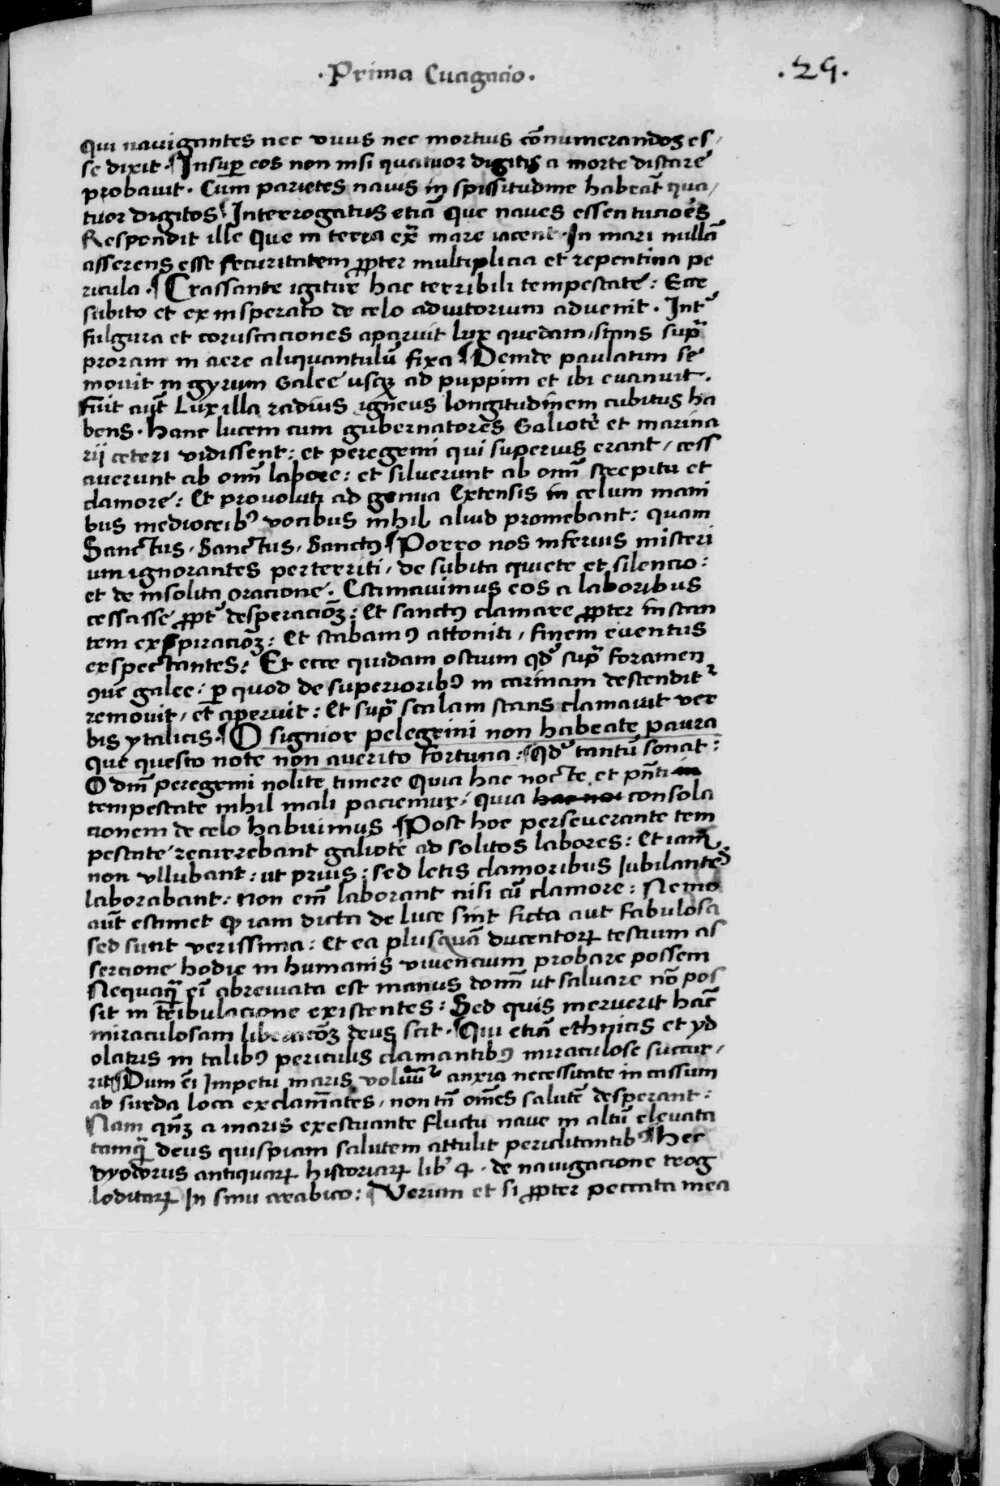 ·Prima Euagacio· ·29·
qui nauigantes nec viuos nec mortuis cōnumerandos es,
se dixit. ¶Insuꝑ eos non nisi quatuor digitis a morte distare
probauit. Cum parietes nauis in spissitudine habeāt qua,
tuor digitos ¶Interrogatus etiā Que naues essen tuciores
Respondit ille Que in terra ex̄ mare iacent. In mari nullā
asserens esse securitatem ꝓpter multiplicia et repentina pe
ricula. ¶Crassante igitur hac terribili tempestate: Ecce
subito et ex insperato de celo adiutorium aduenit. Int̉
fulgura et coruscaciones aparuit lux quedam, stans sup̄
proram in aere aliquantulū fixa ¶Deinde paulatim se
mouit in gyrum Galee usqꝫ ad puppim et ibi euanuit.
Fuit aut̄ Lux illa radius igneus longitudinem cubitus ha
bens. Hanc lucem cum gubernatores Galiote et marina
rij ceteri vidissent: et peregrini qui superius erant, cess
auerunt ab omī labore: et siluerunt ab omī strepitu et
clamore: Et prouoluti ad genua Extensis in celum mani
bus mediocribꝰ vocibus nihil aliud promebant: quam
Sanctus, Sanctus, Sanctꝰ ¶Porro nos inferius misteri
um ignorantes perterriti, de subita quiete et silencio:
et de insolita oracione. Estimauimus eos a laboribus
cessasse ꝓpt̉ desperacioꝫ: Et sanctꝰ clamare ꝓpter instan
tem expiracioꝫ: Et stabamꝰ attoniti, finem euentus
exspectantes: Et ecce quidam ostium qd̉ sup̄ foramen
que galee: ꝑ quod de superioribꝰ in carinam descendit̉
remouit, et aperuit: Et sup̄ scalam stans clamauit ver
bis ytalicis. ¶O signior pelegrini non habeate paura
que questo note non auerito fortuna: ¶Qd̉ tantū sonat:
O dnī peregrini nolite timere Quia hac nocte et pn̄ti in
tempestate nihil mali paciemur, quia hac noc consola
cionem de celo habuimus. ¶Post hoc perseuerante tem
pestate recurrebant galiote ad solitos labores: Et iam
non vllubant: ut prius: sed letis clamoribus Jubilantes
laborabant: Non em̄ laborant nisi cū clamore: Nemo
aut̄ estimet ꝙ iam dicta de luce sint ficta aut fabulosa
sed sunt verissima: Et ea plusquā ducentoꝝ testium as
sercione hodie in humanis viuencium probare possem
Nequaq̄ ei̅ abreuiata est manus domī ut saluare nō pos
sit in tribulacione existentes: Sed quis meruerit hāc
miraculosam liberacioꝫ deus scit. ¶Qui etiā ethnicis et yd
olatris in talibꝰ periculis clamantibꝰ miraculose succur,
rit ¶Dum ei̅ Impetu maris anxia necessitate in cassum
ad surda loca exclamātes, non tn̄ om̄es salutē desperant:
Nam qn̄ꝫ a maris exestuante fluctu naue in altū eleuata
tamq̄ deus quispiam salutem attulit periclitantibꝰ ¶Hec
dyodorus antiquaꝝ historiaꝝ libꝰ 4. de nauigacione trog
loditaꝝ In sinu arabico: ¶Verum et si ꝓpter peccata mea